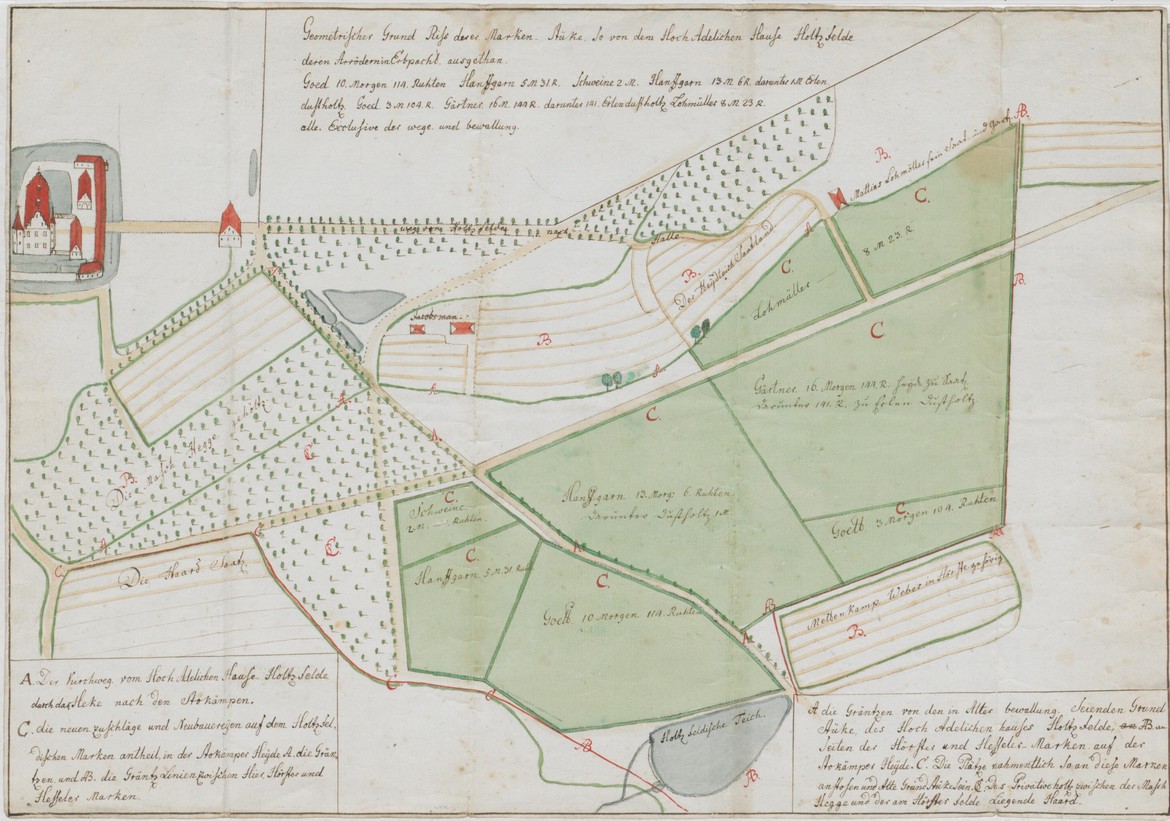 Geometrischer Grund Riss derer Marken Aüke so von dem Hoch Adelichen Hause Holtzfelde
deren Arrödern in Erbpacht ausgethan.
Goed 10 Morgen 114 Ruhten Hanffgarn 5 M 31 R. Schweine 2 M. Hanffgarn 13 M 6 R. darunter 1 M Erlen
dustholtz Goed 3 M 104 R. Gärtner 16 M 144 R. darunter 141. Erlendustholtz Lohmüller 8 M 23 R.
alle. Exclusive der wege und bewallung.
B.
Mattias Lohmöller sein Saat und
B.
C.
8 M 23. R.
weg vom Holtzfelde nach
Halle
B.
Der Heydloich Saatland
A
C.
Lohmüller
B.
Jacobsman
B
A
A
A
A
A.
C
C.
Gärtner 16. Morgen 144 R. Heyde zu Saat
darunter 141. R. zu Erlen Düstholtz
C
B.
Die Masch Hegge holtz
C.
Schweine
2 M. Ruhten
Hanffgarn 13. Morg: 6 Ruhten
darunter Düstholtz 1 M
C
Goett 3 Morgen 104 Ruhten
B
A
C
C
C.
Die Haard Saat
C.
Hanffgarn 5 M 31 R
A
C.
Goett 10 Morgen 114 Ruhten
B
A
Mettenkamp Weber in Hörste gehörig
B.
C
C
B
Holtzfeldische Teich.
B.
A. Der Kirchweg vom Hoch Adelichen Hause Holtzfelde
durch das Heke nach den Arkämpen.
C. die neuen zuschläge und Neubauereyen auf dem Holtzfel-
dischen Marken antheil in der Arkämper Heyde A. die Grän-
tzen, und B. die Gräntz Linien zwischen Hier, Hörster und
Hesseler Marken.
A die Gräntzen von den in Alter bewallung Seienden Grund
Aüke, des Hoch Adelichen hauses Holtzfelde, B. an
Seiten der Hörster und Hesseler Marken auf der
Arkämper Heyde. C. Die Plätze nahmentlich so an diese Marken
anstosen und Alte Grund Aüke sein. C Das Privative holtz zwischen der Masch
Hegge und der am Hörster felde Liegende Haard.